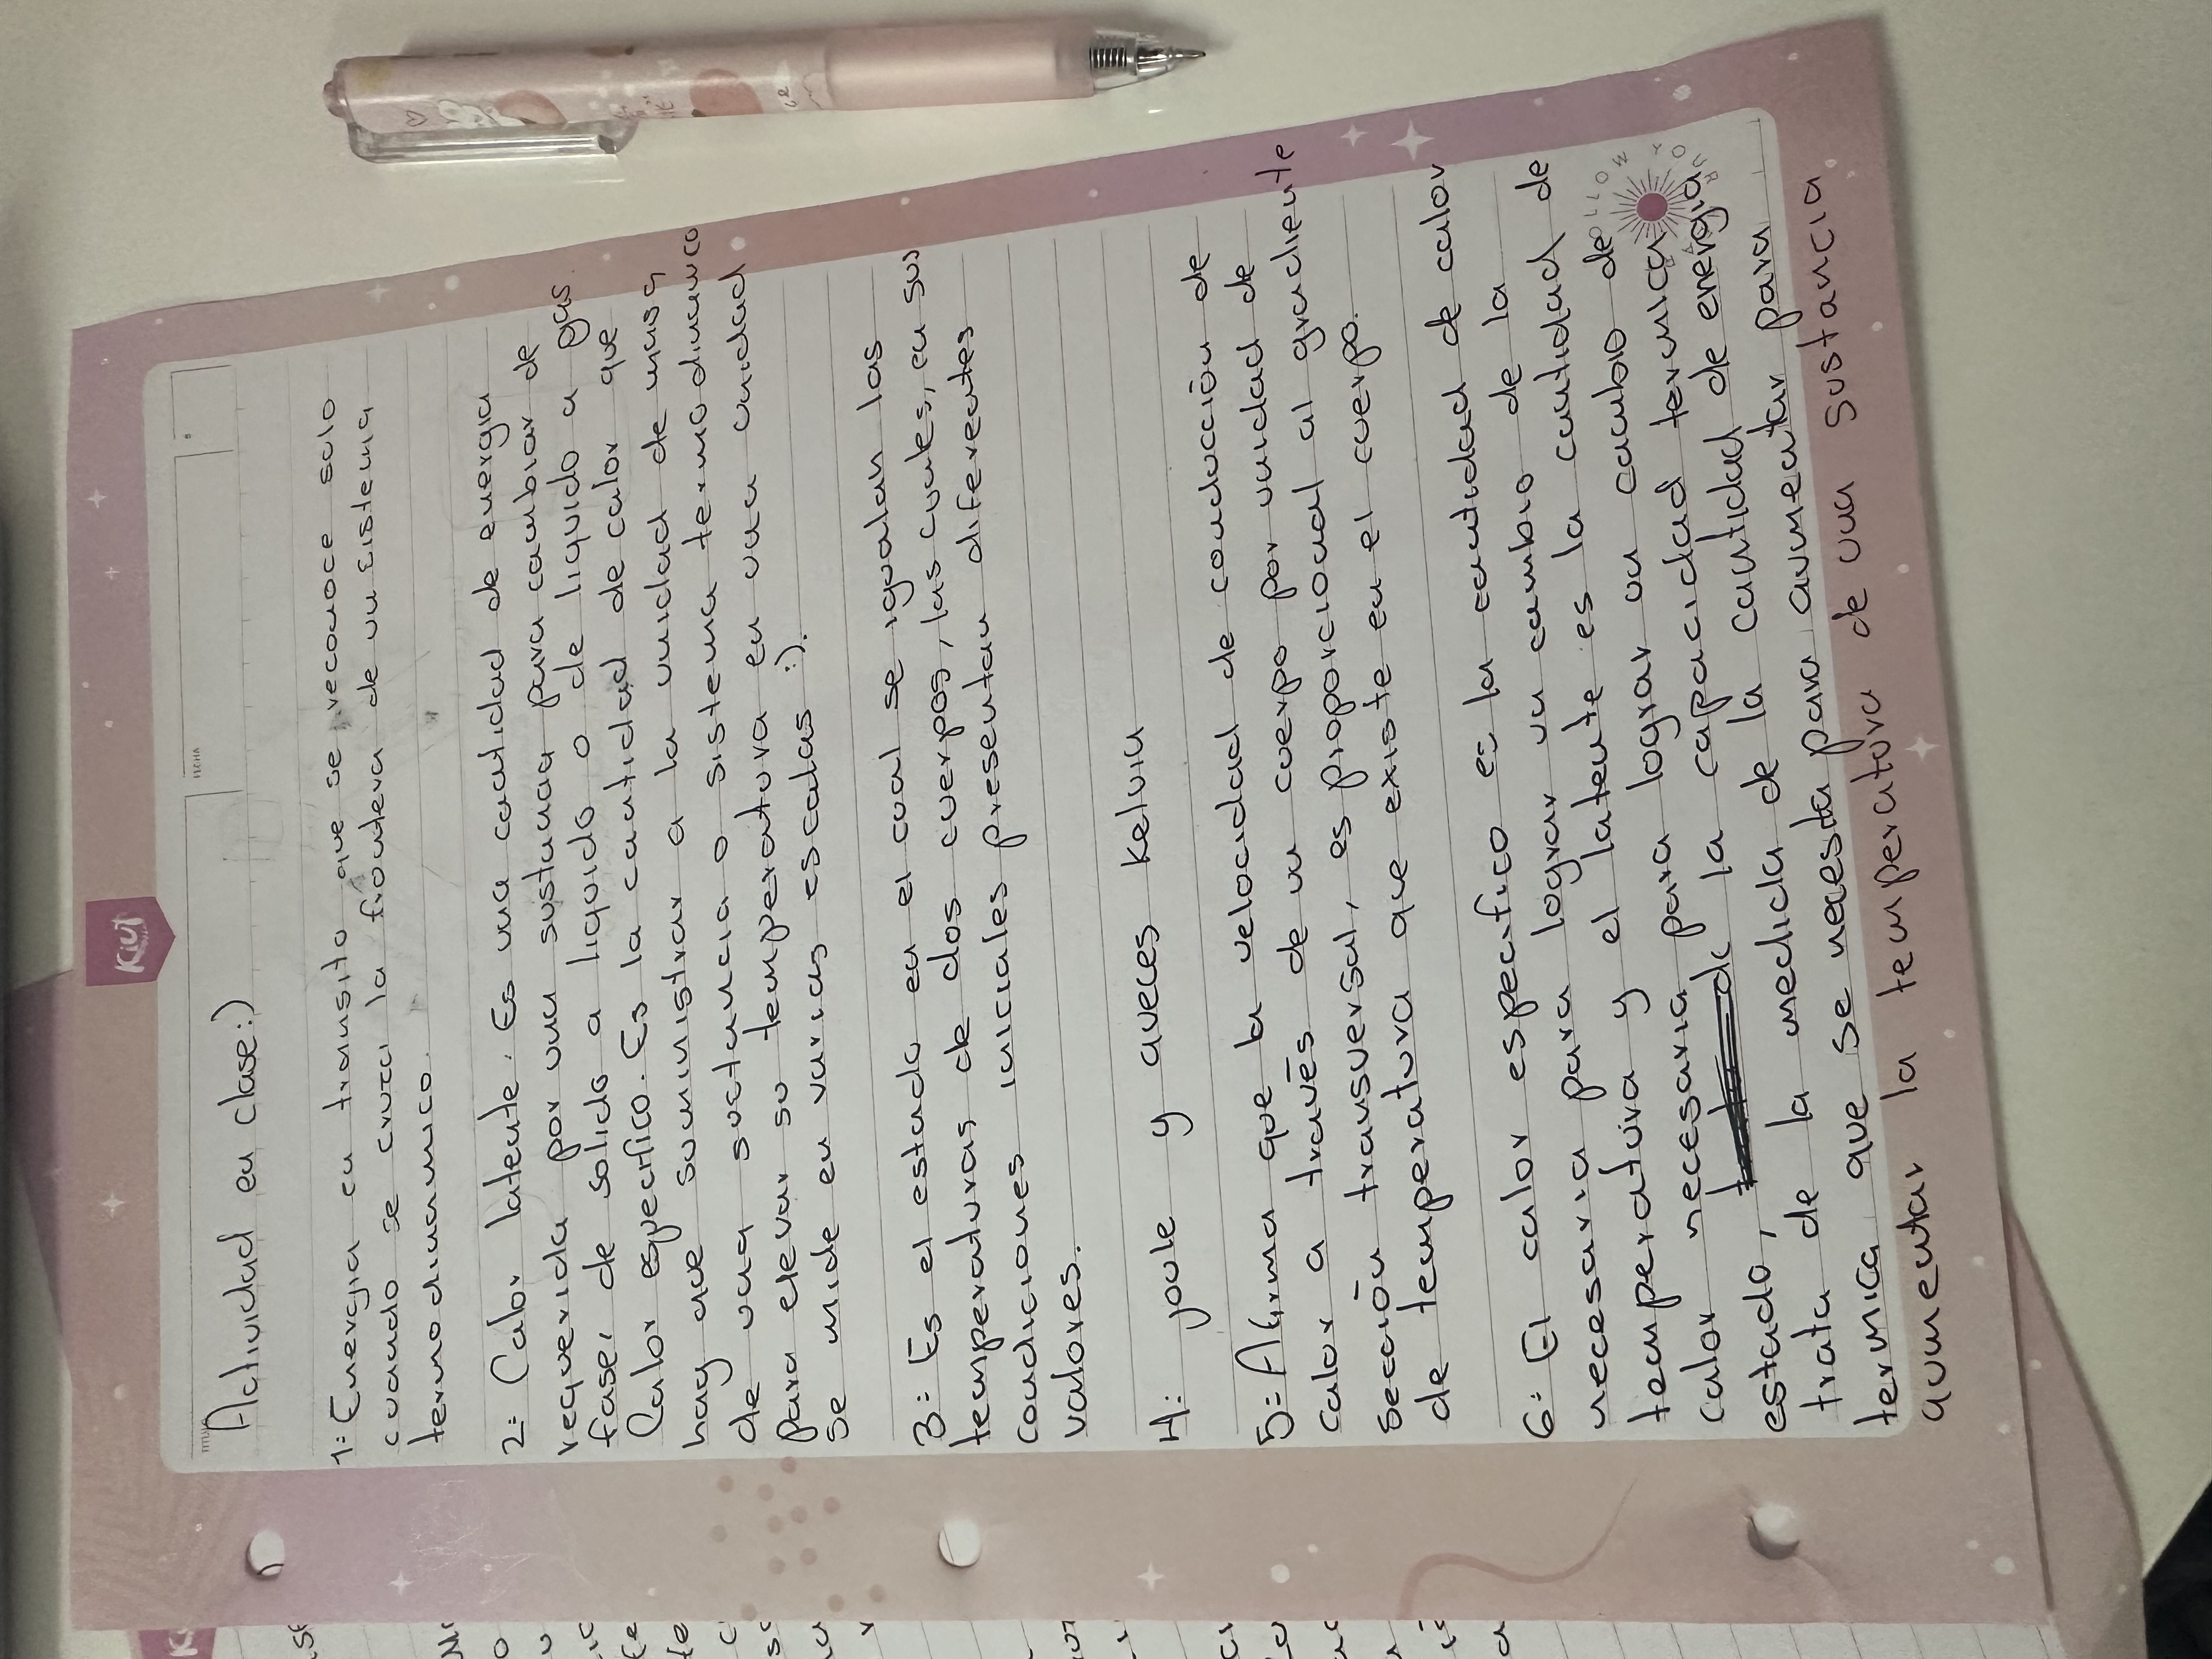 Kiut
FECHA
Actividad en clase:)
1:- Energia en transito que se reconoce solo
cuando se cruza la frontera de un sistema
termodinamico.
2:- Calor latente. Es una cantidad de energia
requerida por una sustancia para cambiar de
fase, de solido a liquido o de liquido a gas.
Calor especifico. Es la cantidad de calor que
hay que suministrar a la unidad de masa
de una sustancia o sistema termodinamico
para elevar su temperatura en una unidad
se mide en varias escalas :).
3:- Es el estado en el cual se igualan las
temperaturas de dos cuerpos, las cuales, en sus
condiciones iniciales presentan diferentes
valores.
4:- joule y aveces kelvin
5:- Afirma que la velocidad de conducción de
calor a través de un cuerpo por unidad de
sección transversal, es proporcional al gradiente
de temperatura que existe en el cuerpo.
6:- El calor especifico es la cantidad de calor
necesaria para lograr un cambio de la
temperatura y el latente es la cantidad de
calor necesaria para lograr un cambio de
estado, de la capacidad termica
trata de la medida de la cantidad de energia
termica que se necesita para aumentar para
aumentar la temperatura de una sustancia
FOLLOW YOUR